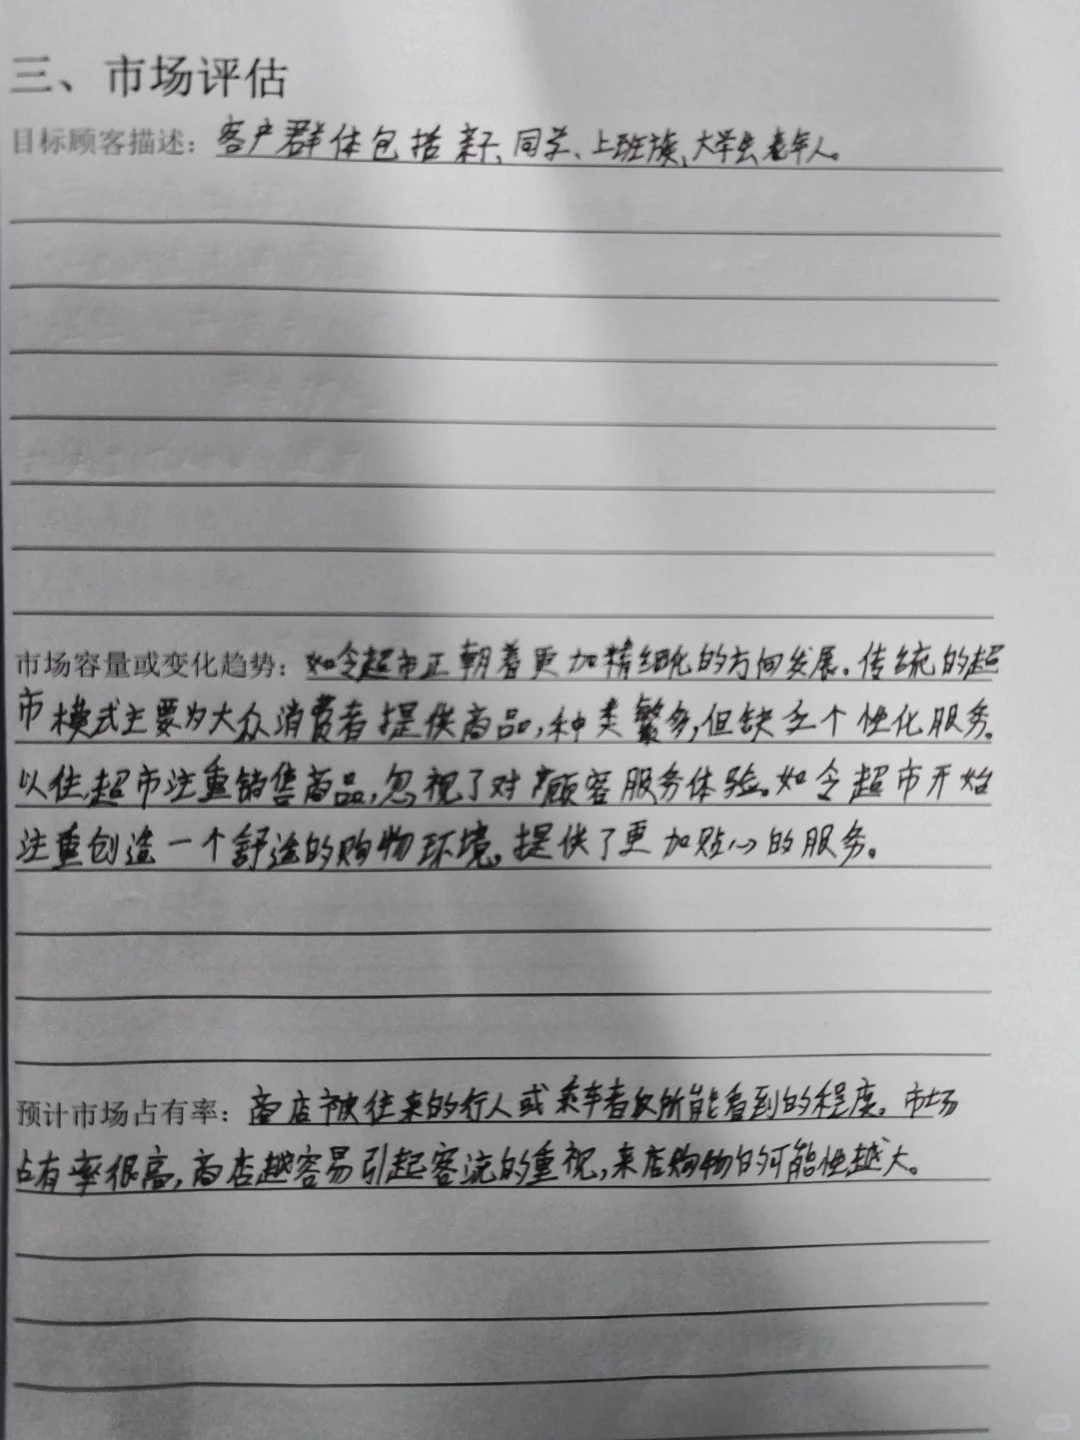 三、市场评估
目标顾客描述：客户群体包括亲子、同学、上班族、大学生老年人。
市场容量或变化趋势：如今超市正朝着更加精细化的方向发展。传统的超
市模式主要为大众消费者提供商品,种类繁多,但缺乏个性化服务。
以往,超市注重销售商品,忽视了对顾客服务体验。如今超市开始
注重创造一个舒适的购物环境,提供了更加贴心的服务。
预计市场占有率：商店被往来的行人或乘车者所能看到的程度。市场
占有率很高,商店越容易引起客流的重视,来店购物的可能性越大。